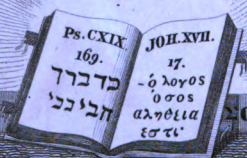 Ps. CXIX.
169.
כדברך
הבינני
JOH. XVII.
17.
-ὁ λογος
ὁ σος
αληθεια
εστι·